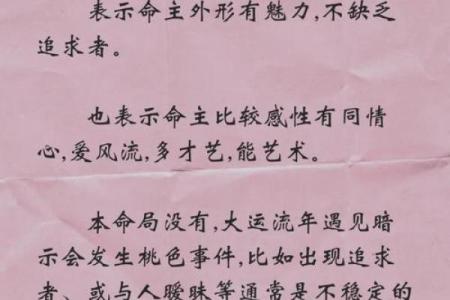 表示命主外形有魅力,不缺乏
追求者。
也表示命主比较感性有同情
心,爱风流,多才艺,能艺术。
本命局没有,大运流年遇见暗
示会发生桃色事件,比如出现追求
者、或与人暧昧等通常是不稳定的